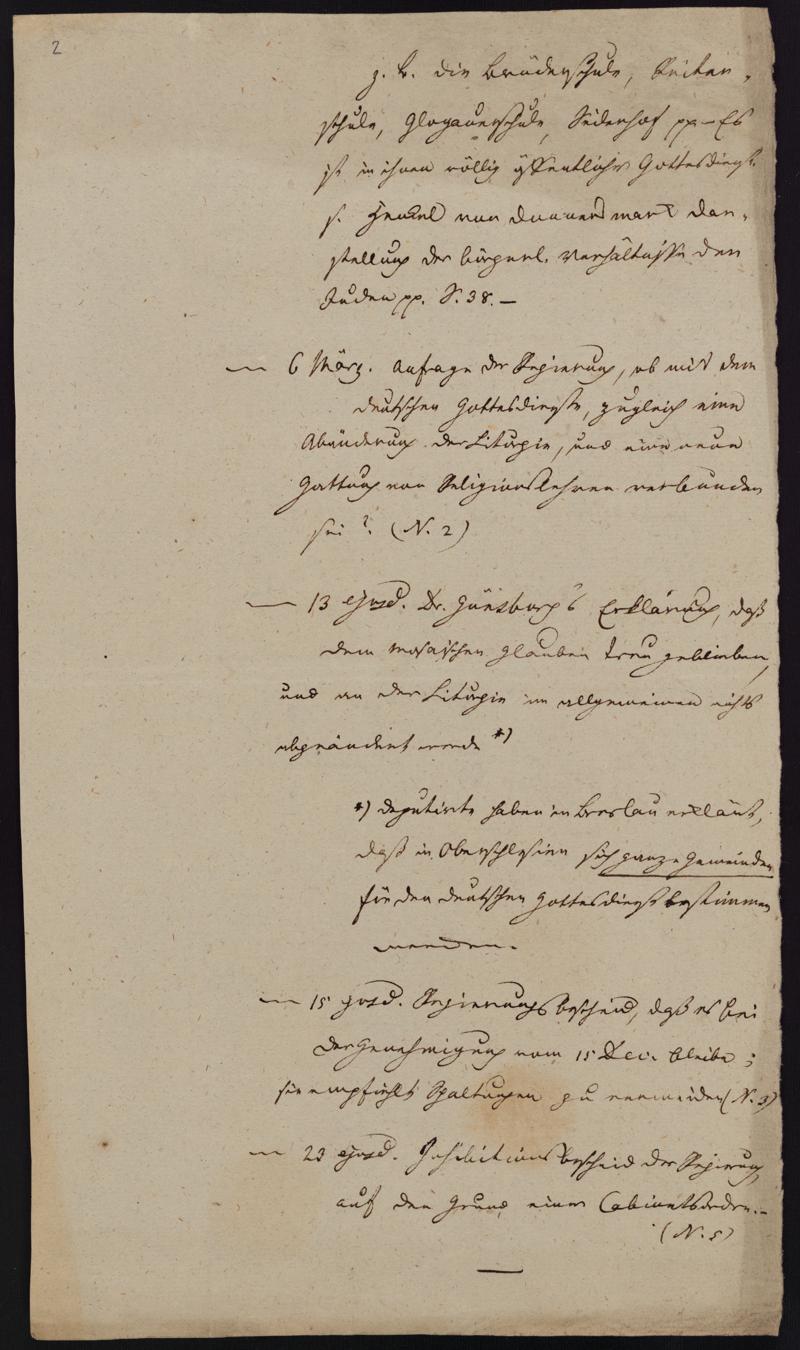 2
z. B. die Brüderschule, Kirten-
schule, Glogauerschule, Sederhof pp – Es
ist in ihnen völlig öffentlicher Gottesdienst.
s. Henkel von Donnersmark Dar-
stellung der bürgerl. Verhältnisse der
Juden pp. S. 38. –
— 6 März. Anfrage der Regierung, ob mit dem
deutschen Gottesdienste, zugleich eine
Abänderung der Liturgie, und eine neue
Gattung von Religionslehren verbunden
sei? (N. 2)
— 13 ejusd. Dr. Günsburg's Erklärung, daß
dem mosaischen Glauben treu geblieben,
und an der Liturgie im allgemeinen nichts
abgeändert werde *)
*) Deputirte haben in Breslau erklärt,
daß in Oberschlesien sich ganze Gemeinden
für den deutschen Gottesdienst bestimmen
werden.
— 15 ejusd. Regierungsbescheid, daß es bei
der Genehmigung vom 15 Dec. bleibe;
sie empfiehlt Spaltungen zu vermeiden (N. 3)
— 23 ejusd. Inhibitionsbescheid der Regierung
auf den Grund einer Cabinetsordre. –
(N. 5)